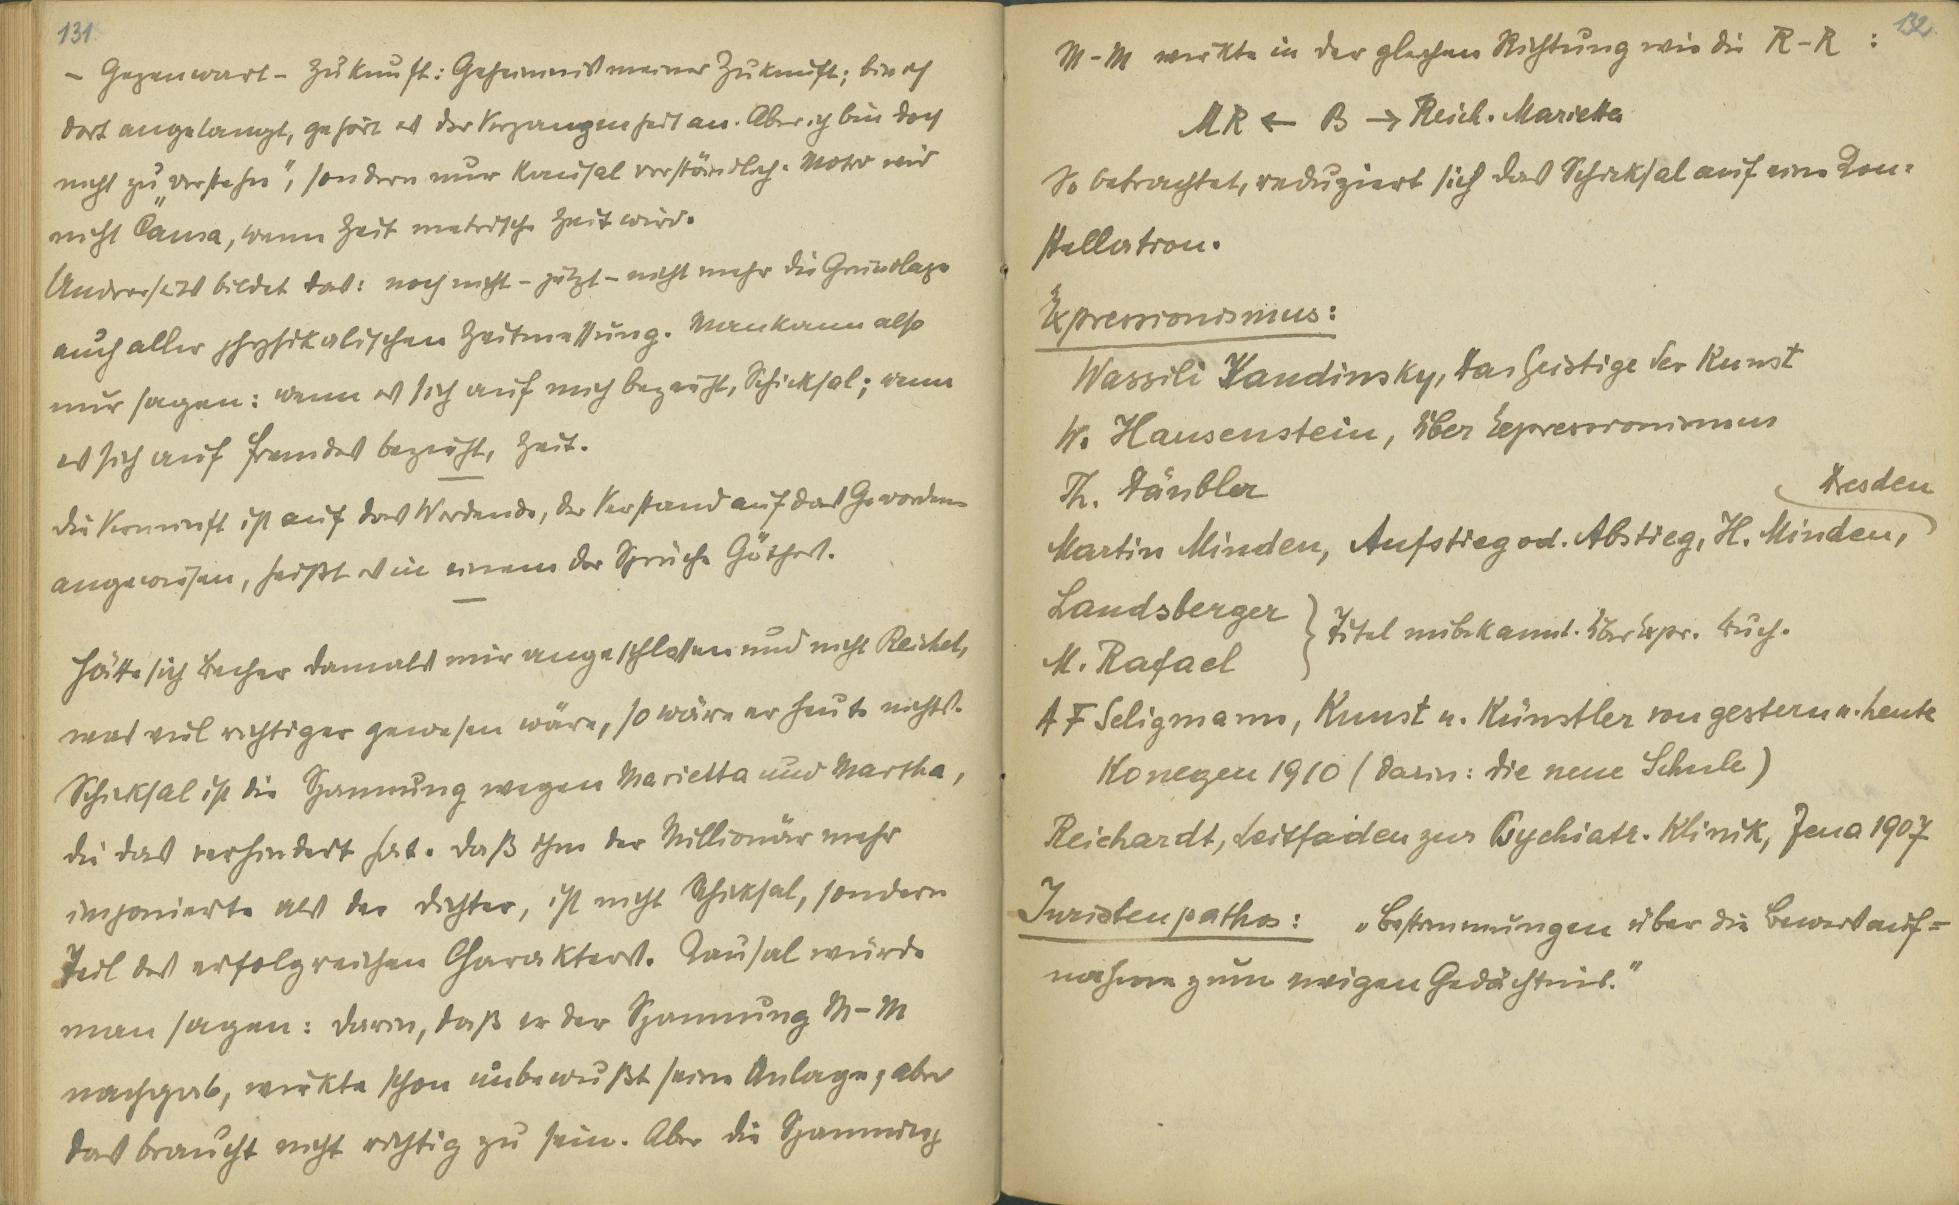 131
– Gegenwart – Zukunft: Geheimnis meiner Zukunft; bin ich
dort angelangt, gehört es der Vergangenheit an. Aber ich bin doch
nicht zu „verstehn“, sondern nur kausal verständlich. Motiv wird
nicht Causa, wenn Zeit metrische Zeit wird.
Andrerseits bildet das: noch nicht – jetzt – nicht mehr die Grundlage
auch aller physikalischen Zeitmessung. Man kann also
nur sagen: wenn es sich auf mich bezieht, Schicksal; wenn
es sich auf fremdes bezieht, Zeit.
Die Vernunft ist auf das Werdende, der Verstand auf das Gewordene
angewiesen, heißt es in einem der Sprüche Göthes.
Hätte sich Becher damals mir angeschlossen und nicht Reichel,
was viel richtiger gewesen wäre, so wäre er heute nichts.
Schicksal ist die Spannung wegen Marietta und Martha,
die das verhindert hat. Daß ihm der Millionär mehr
imponierte als der Dichter, ist nicht Schicksal, sondern
Teil des erfolgreichen Charakters. Kausal würde
man sagen: darin, daß er der Spannung M–M
nachgab, wirkte schon unbewußt seine Anlage; aber
das braucht nicht richtig zu sein. Aber die Spannung
132
M–M wirkte in der gleichen Richtung wie die R–R :
MR ← B → Reich. Marietta
So betrachtet, reduziert sich das Schicksal auf eine Kon-
stellation.
Expressionismus:
Wassili Kandinsky, Das Geistige der Kunst
W. Hausenstein, Über Expressionismus
Th. Däubler
Dresden
Martin Minden, Aufstieg od. Abstieg, H. Minden,
Landsberger
M. Rafael } Titel unbekannt. Über Expr. Buch.
A F Seligmann, Kunst u. Künstler von gestern u. heute
Konegen 1910 (darin: Die neue Schule)
Reichardt, Leitfaden zur Psychiatr. Klinik, Jena 1907
Juristenpathos: „Bestimmungen über die Beweisauf=
nahme zum ewigen Gedächtnis.“